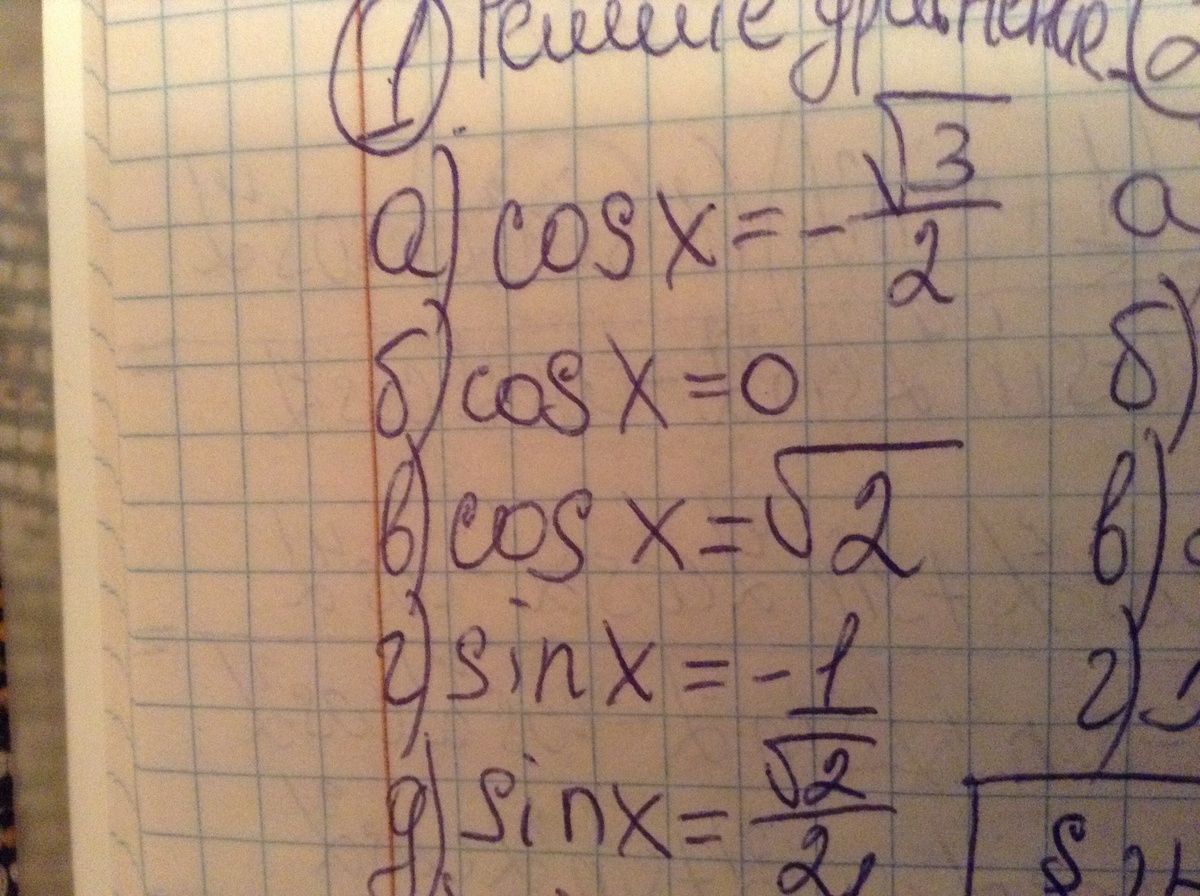 1 Решите уравнение
а) cos x = -√3/2
б) cos x = 0
в) cos x = √2
г) sin x = -1
д) sin x = √2/2
а
б)
в)
г)